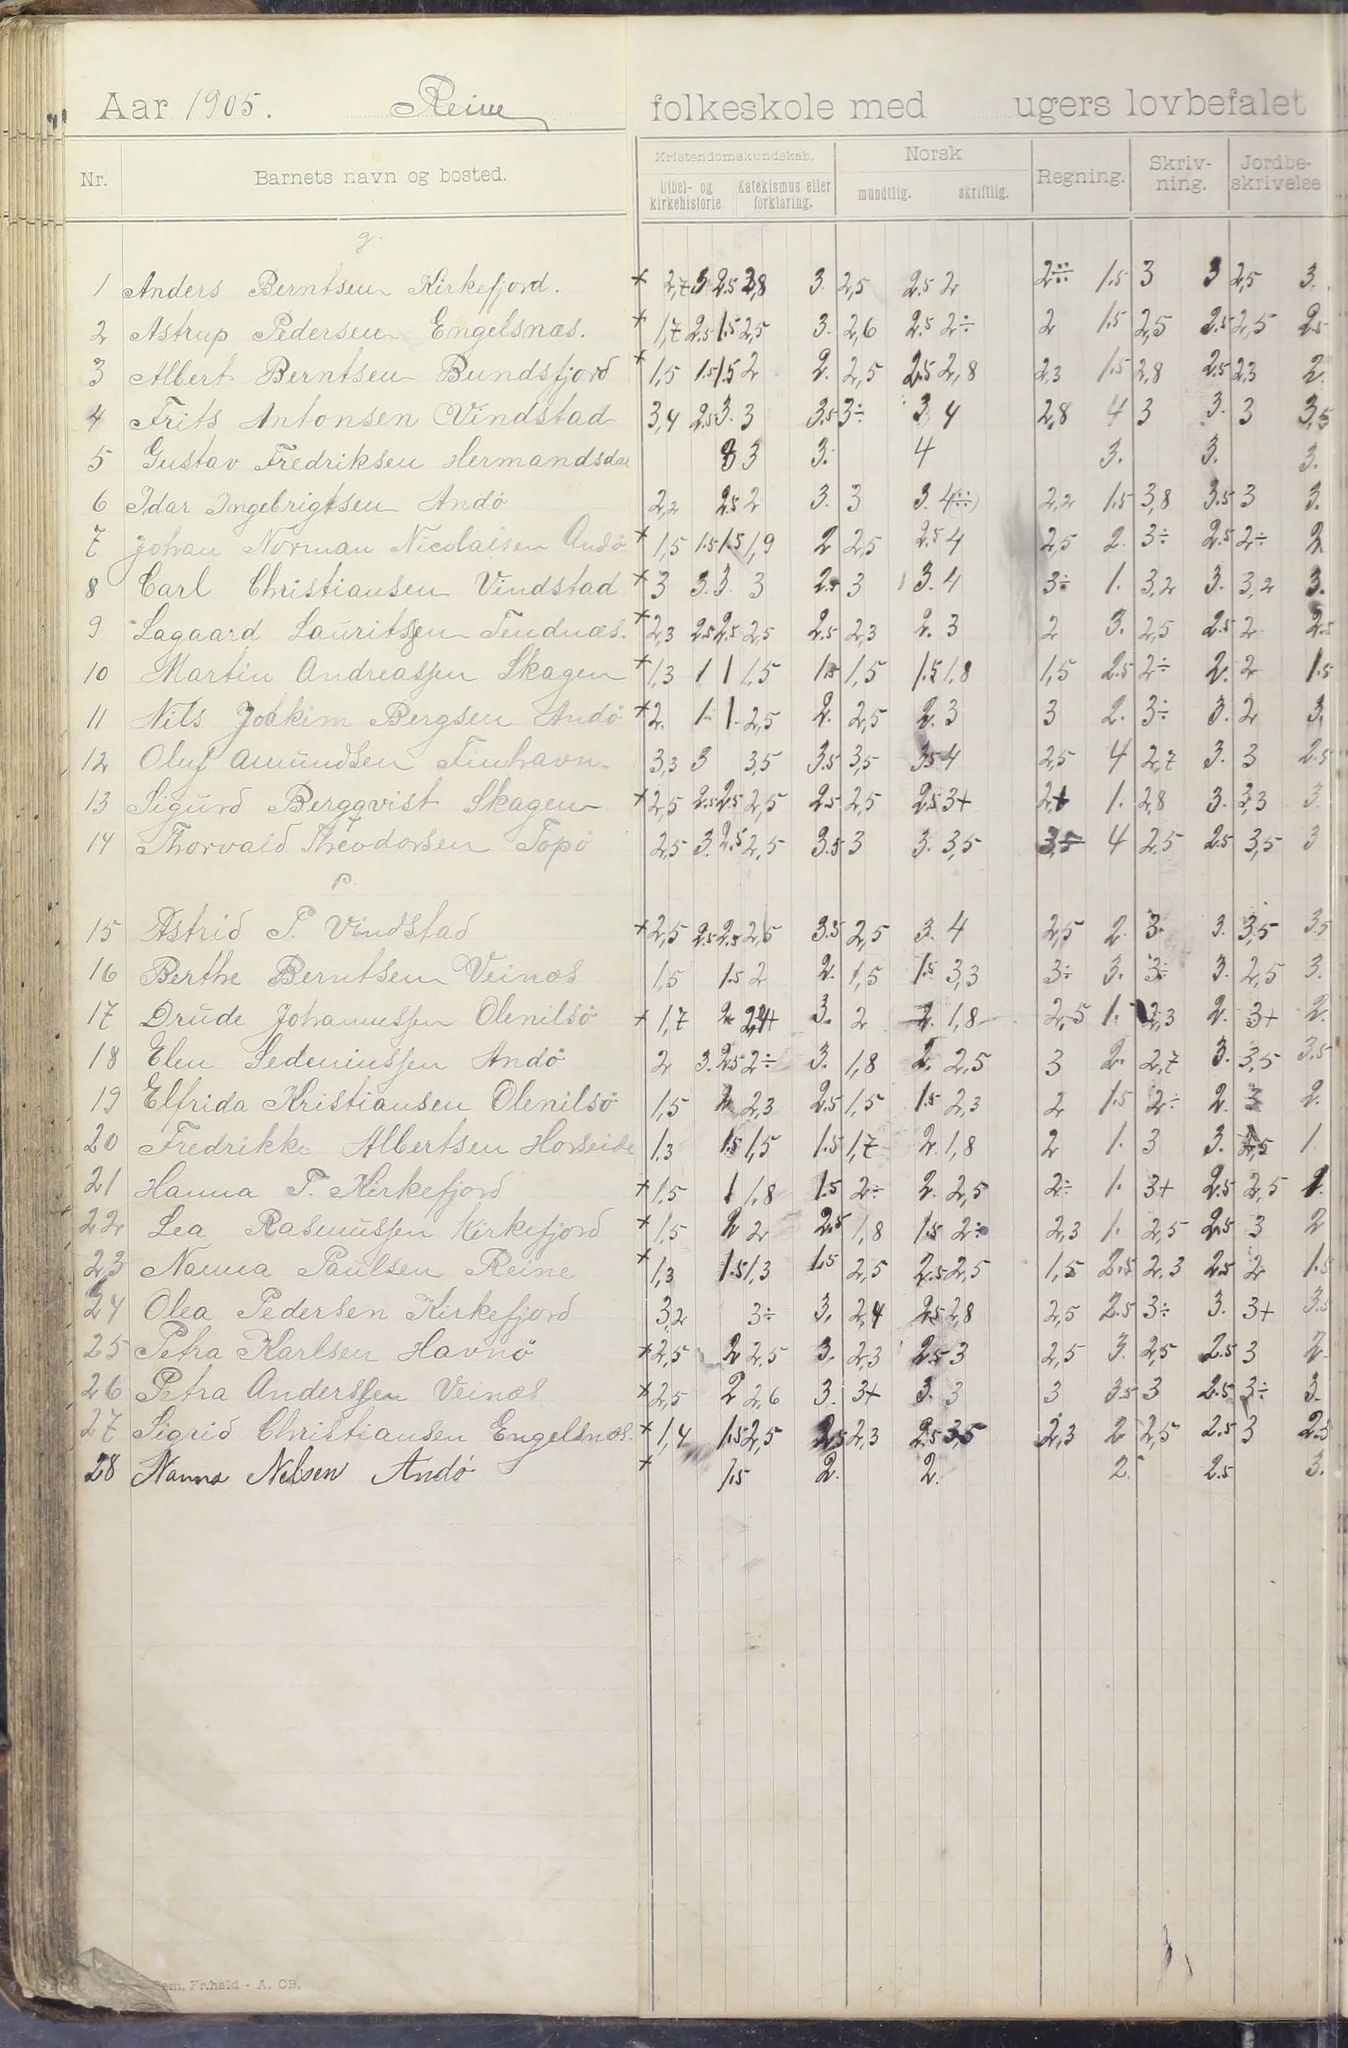 Aar 1905. Reine folkeskole med ugers lovbefalet
Nr. Barnets navn og bosted. Kristendomskundskab. Norsk Regning. Skriv-ning. Jordbe-skrivelse
Bibel- og kirkehistorie Katekismus eller forklaring. mundtlig. skriftlig.
g.
1 Anders Berntsen Kirkefjord. * 2,7 3 2.5 2,8 3. 2,5 2.5 2 2÷ 1.5 3 3 2,5 3.
2 Astrup Pedersen Engelsnæs. * 1,7 2.5 1.5 2,5 3. 2,6 2.5 2÷ 2 1.5 2,5 2.5 2,5 2.5
3 Albert Berntsen Bundsfjord * 1,5 1.5 1.5 2 2. 2,5 2.5 2,8 2,3 1.5 2,8 2.5 2,3 2.
4 Frits Antonsen Vindstad 3,4 2.5 3. 3 3.5 3÷ 3. 4 2,8 4 3 3. 3 3,5
5 Gustav Fredriksen Hermandsdal 3 3 3. 4 3. 3. 3.
6 Idar Ingebrigtsen Andö 2,2 2.5 2 3. 3 3. 4÷ 2,2 1.5 3,8 3.5 3 3.
7 Johan Norman Nicolaisen Andö * 1,5 1.5 1.5 1,9 2 2,5 2.5 4 2,5 2. 3÷ 2.5 2÷ 2
8 Carl Christiansen Vindstad * 3 3. 3. 3 2.5 3 3. 4 3÷ 1. 3,2 3. 3,2 3.
9 Lagaard Lauritssen Tendnæs. * 2,3 2.5 2.5 2,5 2.5 2,3 2. 3 2 3. 2,5 2.5 2 2.5
10 Martin Andreassen Skagen * 1,3 1 1 1,5 1.5 1,5 1.5 1,8 1,5 2.5 2÷ 2. 2 1.5
11 Nils Joakim Bergsen Andö * 2. 1. 1. 2,5 2. 2,5 2. 3 3 2. 3÷ 3. 2 3.
12 Oluf Amundsen Finhavn 3,3 3 3,5 3.5 3,5 3.5 4 2,5 4 2,7 3. 3 2.5
13 Sigurd Bergqvist Skagen * 2,5 2.5 2.5 2,5 2.5 2,5 2.5 3+ 2+ 1. 2,8 3. 3,3 3.
14 Thorvald Theodorsen Topö 2,5 3. 2.5 2,5 3.5 3 3. 3,5 3,5 4 2,5 2.5 3,5 3
p.
15 Astrid P. Vindstad * 2,5 2.5 2.5 2,5 3.5 2,5 3. 4 2,5 2. 3. 3. 3,5 3.5
16 Berthe Berntsen Veinæs 1,5 1.5 2 2. 1,5 1.5 3,3 3÷ 3. 3÷ 3. 2,5 3.
17 Drude Johannessen Olenilsö * 1,7 2 2,4 3. 2 2. 1,8 2,5 1. 2,3 2. 3+ 2.
18 Elen Sedeniussen Andö 2 3. 2.5 2÷ 3. 1,8 2. 2,5 3 2. 2,7 3. 3,5 3.5
19 Elfrida Kristiansen Olenilsö 1,5 2 2,3 2.5 1,5 1.5 2,3 2 1.5 2÷ 2. 3 2.
20 Fredrikke Albertsen Horseide 1,3 1.5 1,5 1.5 1,7 2. 1,8 2 1. 3 3. 1,5 1.
21 Hanna T. Kirkefjord * 1,5 1 1,8 1.5 2÷ 2. 2,5 2÷ 1. 3+ 2.5 2,5 2.
22 Lea Rasmussen Kirkefjord * 1,5 2 2 2.5 1,8 1.5 2÷ 2,3 1. 2,5 2.5 3 2
23 Nanna Paulsen Reine * 1,3 1.5 1,3 1.5 2,5 2.5 2,5 1,5 2.5 2,3 2.5 2 1.5
24 Olea Pedersen Kirkefjord 3,2 3÷ 3. 2,4 2.5 2,8 2,5 2.5 3÷ 3. 3+ 3.5
25 Petra Karlsen Havnö * 2,5 2 2,5 3. 2,3 2.5 3 2,5 3. 2,5 2.5 3 2.
26 Petra Anderssen Veinæs * 2,5 2 2,6 3. 3+ 3. 3 3 3.5 3 2.5 3÷ 3.
27 Sigrid Christiansen Engelsnæs. * 1,4 1.5 2,5 2.5 2,3 2.5 3,5 2,3 2 2,5 2.5 3 2.5
28 Nanna Nelsen Andö * 1.5 2. 2. 2. 2.5 3.
3.
Fr.hald - A. CB.